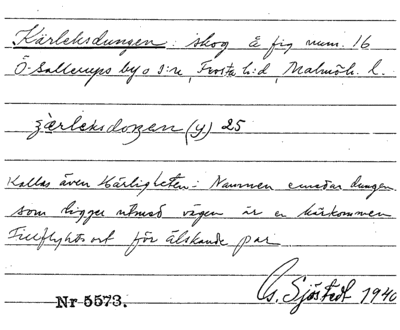 Kärleksdungen: skog å fig num. 16
Ö. Sallerups by o s:n, Frosta h:d, Malmöh. l.
(y) 25
Kallas även Kärligheten: Namnen dungen
som ligger utmed vägen är en
Tillflyktsort för älskande par
Nr 5573. G. Sjöstedt 1940